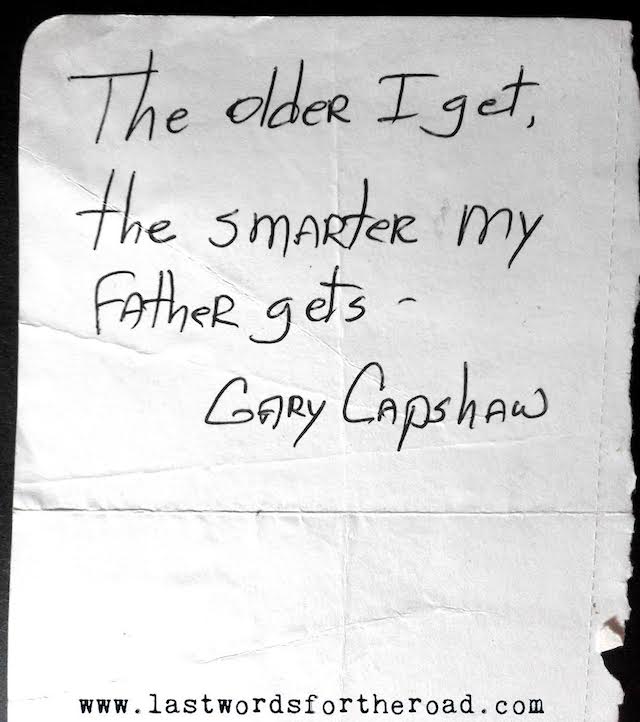 The older I get,
the smarter my
Father gets -
Gary Capshaw
www.lastwordsfortheroad.com